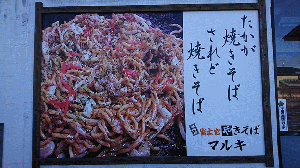 たかが
焼きそば
されど
焼きそば
富士宮焼きそば
マルキ